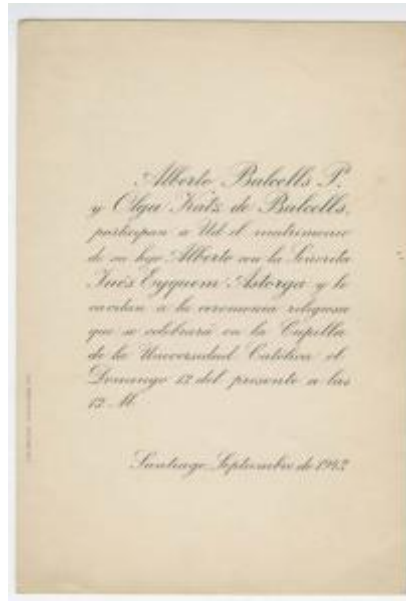 Alberto Balcells P.
y Olga Kratz de Balcells,
participan a Ud el matrimonio
de su hijo Alberto con la Señorita
Inés Eyquem Astorga y le
invitan a la ceremonia religiosa
que se celebrará en la Capilla
de la Universidad Católica el
Domingo 12 del presente a las
12 M.
Santiago, Septiembre de 1942